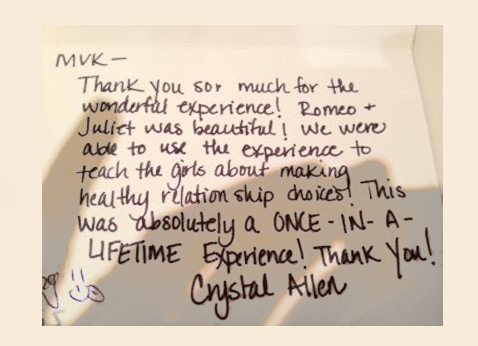 MVK -
Thank you sor much for the
wonderful experience! Romeo +
Juliet was beautiful! We were
able to use the experience to
teach the girls about making
healthy relationship choices! This
was absolutely a ONCE-IN-A-
LIFETIME Experience! Thank You!
Crystal Allen